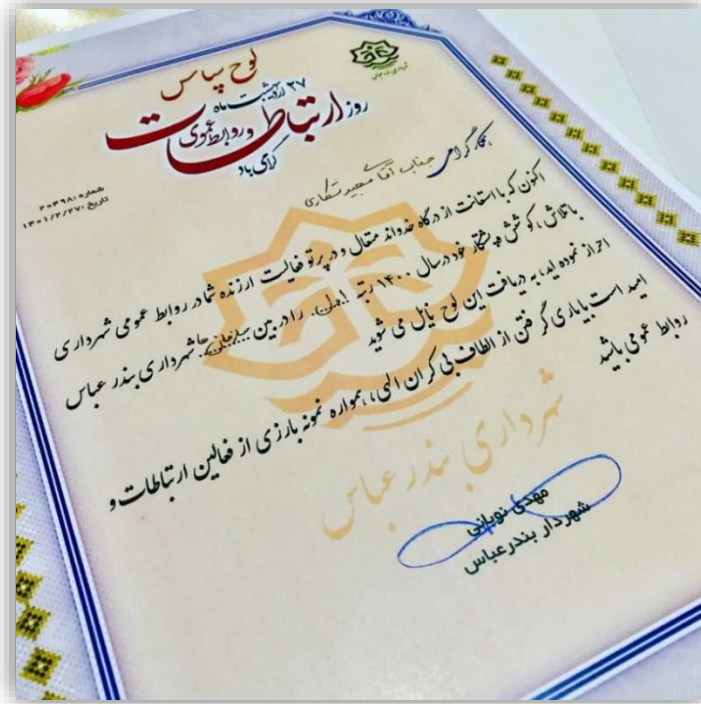 لوح سپاس
۲۷ اردیبهشت ماه
روز ارتباطات و روابط عمومی
گرامی باد
شهرداری بندرعباس
شماره: ۲۰۴۹۸
تاریخ: ۱۴۰۱/۲/۲۷
همکار گرامی جناب آقای مجید شکاری
اکنون که با استعانت از درگاه خداوند متعال و در پرتو فعالیت ارزنده شما در روابط عمومی شهرداری
با تلاش، کوشش و پشتکار خود در سال ۱۴۰۰ رتبه را در بین شهرداری بندر عباس
احراز نموده اید، به دریافت این لوح نایل می شوید
امید است با یاری گرفتن از الطاف بی کران الهی، همواره نمونه بارزی از فعالین ارتباطات و
روابط عمومی باشید
شهرداری بندرعباس
مهدی نوبانی
شهردار بندرعباس